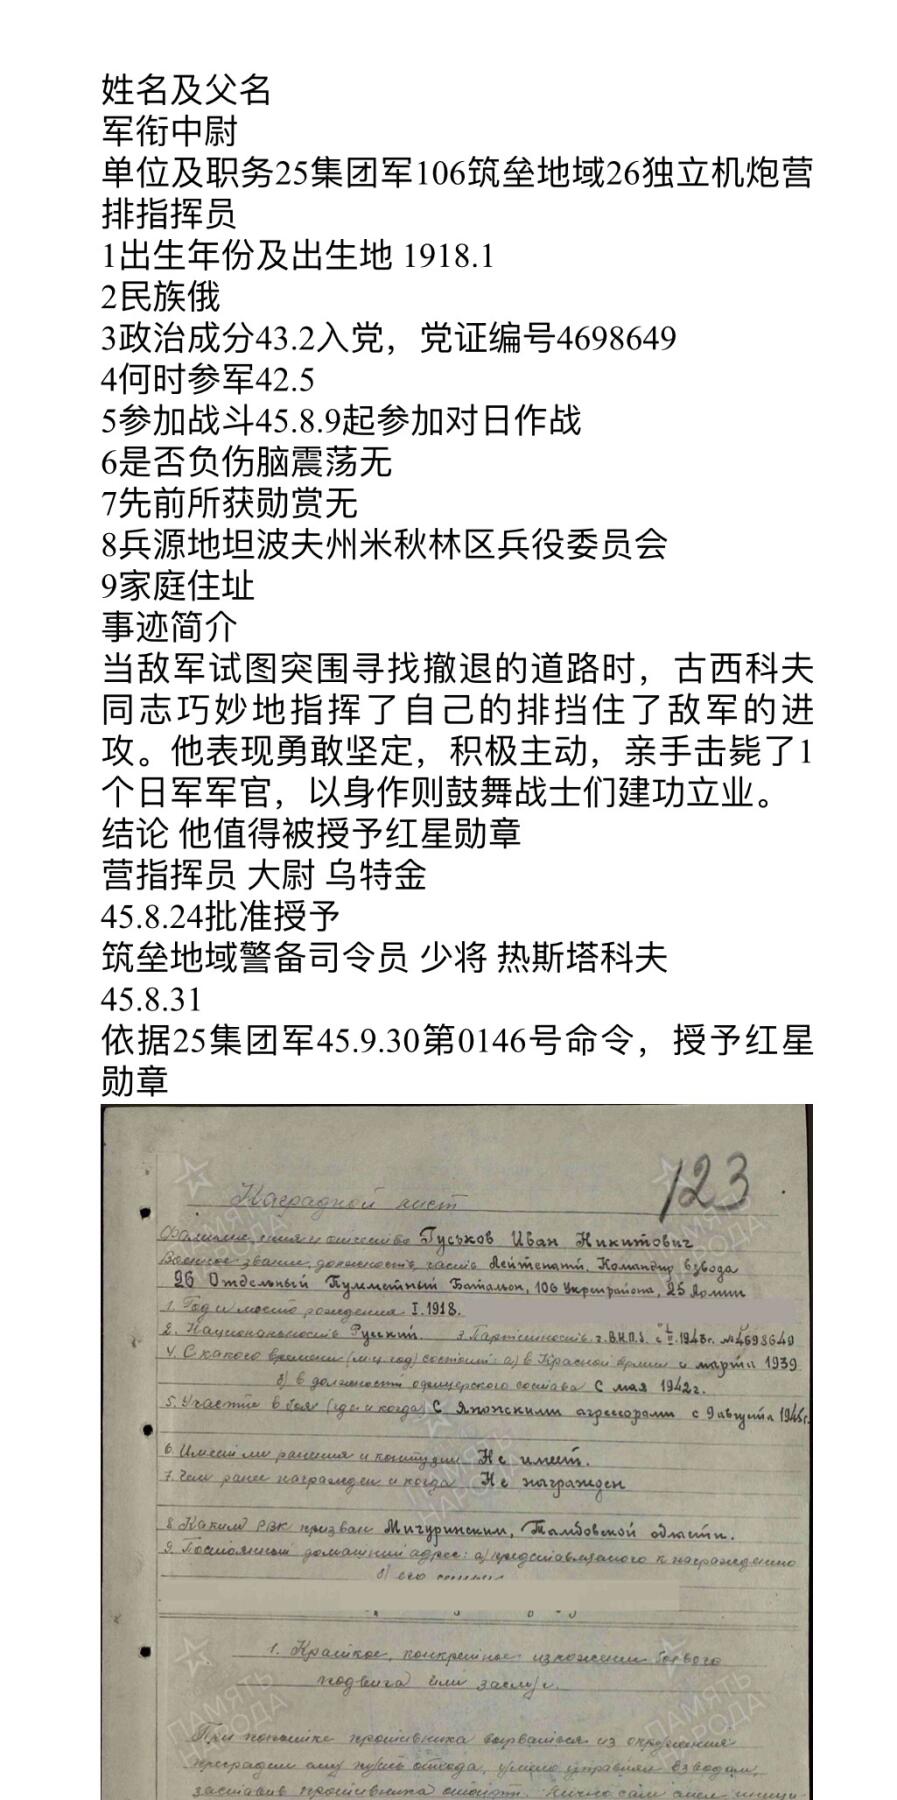 姓名及父名
军衔中尉
单位及职务25集团军106筑垒地域26独立机炮营
排指挥员
1出生年份及出生地 1918.1
2民族俄
3政治成分43.2入党，党证编号4698649
4何时参军42.5
5参加战斗45.8.9起参加对日作战
6是否负伤脑震荡无
7先前所获勋赏无
8兵源地坦波夫州米秋林区兵役委员会
9家庭住址
事迹简介
当敌军试图突围寻找撤退的道路时，古西科夫
同志巧妙地指挥了自己的排挡住了敌军的进
攻。他表现勇敢坚定，积极主动，亲手击毙了1
个日军军官，以身作则鼓舞战士们建功立业。
结论 他值得被授予红星勋章
营指挥员 大尉 乌特金
45.8.24批准授予
筑垒地域警备司令员 少将 热斯塔科夫
45.8.31
依据25集团军45.9.30第0146号命令，授予红星
勋章
123
Наградной лист
Фамилия, имя и отчество Гуськов Иван Никитович
Военное звание, должность, часть Лейтенант, Командир взвода
26 Отдельный Пулеметный Батальон, 106 Укрепрайона, 25 Армии
1. Год и место рождения I.1918.
2. Национальность Русский. 3. Партийность: ч. В.К.П.б. с 1943г. №4698649
4. С какого времени (м-ц, год) состоит: а) в Красной Армии с марта 1939
б) в должности офицерского состава С мая 1942г.
5. Участие в боях (где и когда) С Японскими агрессорами с 9 августа 1945г.
6. Имеет ли ранения и контузии Не имеет.
7. Чем ранее награжден и когда Не награжден
8. Каким РВК призван Мичуринским, Тамбовской области.
9. Постоянный домашний адрес: а) представляемого к награждению
б) его семьи
1. Краткое, конкретное изложение боевого
подвига или заслуг.
ПАМЯТЬ НАРОДА
При попытке противника вырваться из окружения
преградил ему путь отхода, умело управляя взводом,
заставив противника